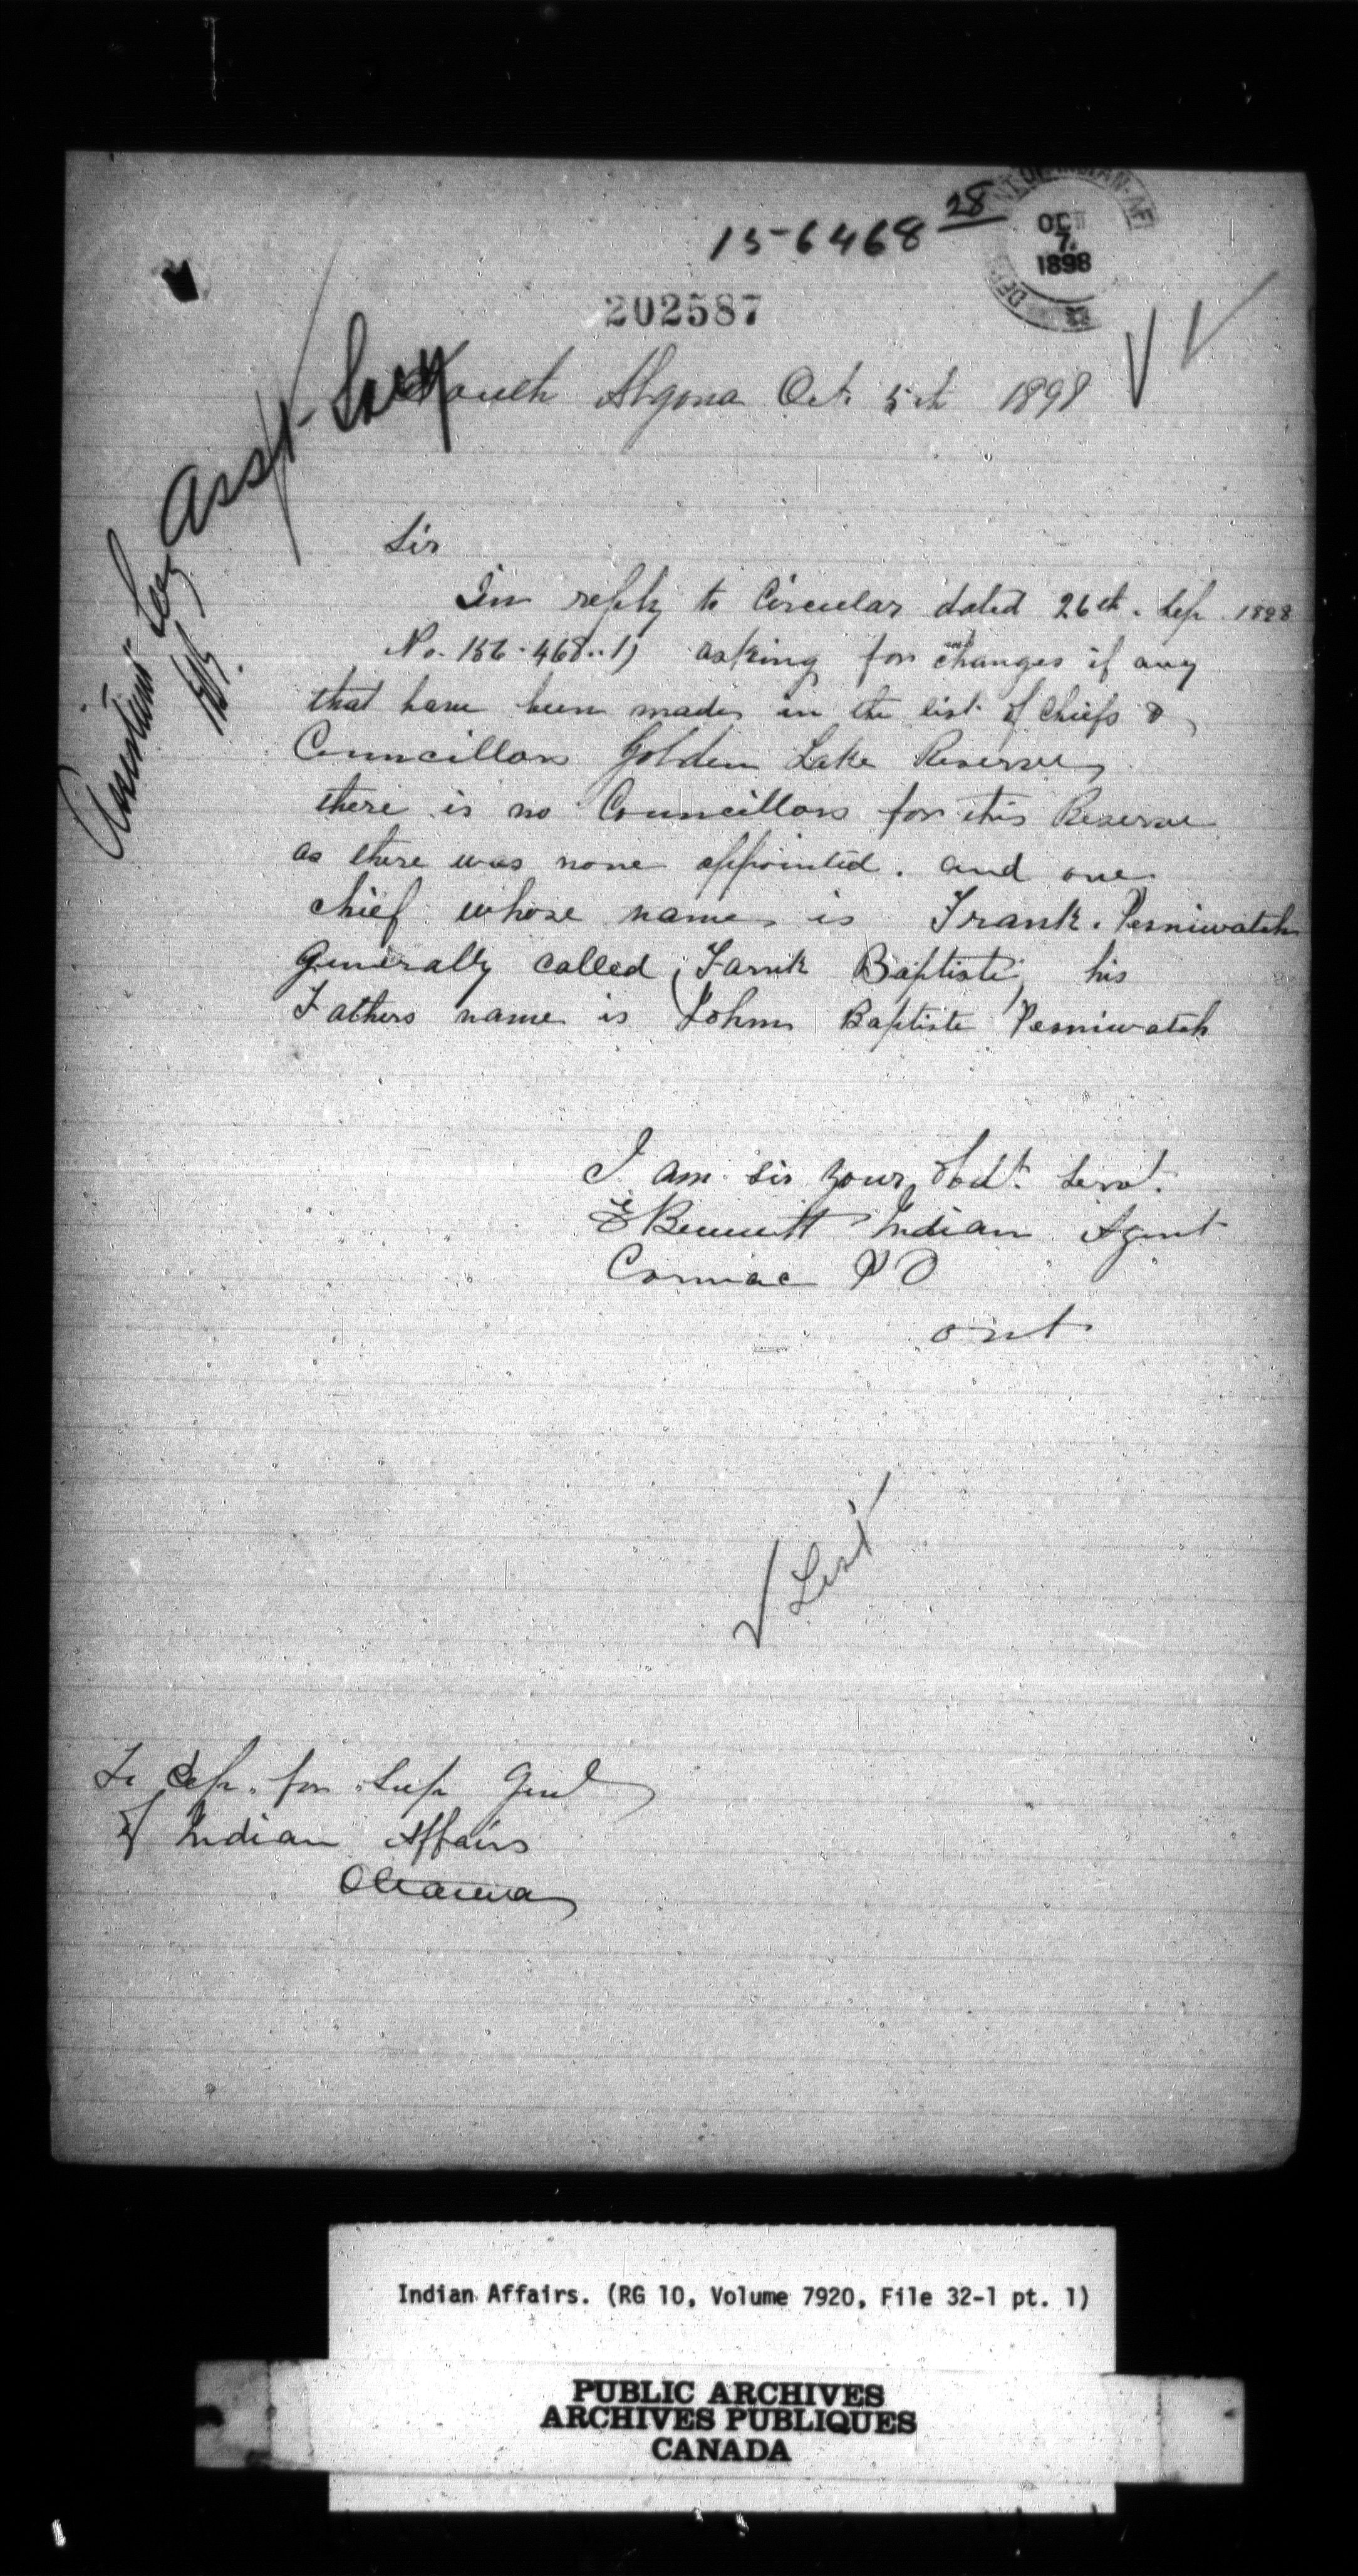 15-6468 28
DEPARTMENT OF INDIAN AFF
OCT
7
1898
202587
Asst. Secy
South Algona Oct. 5th 1898
Assistant Secy
Sir
In reply to Circular dated 26th. Sep. 1898
No. 156.468..1) asking for changes if any
that have been made in the list of Chiefs &
Councillors Golden Lake Reserve
there is no Councillors for this Reserve
as there was none appointed. and one
chief whose name is Frank. Pesniwatch
Generally called Farnk Baptiste, his
Fathers name is John Baptiste Pesniwatch
I am sir your obdt. servt.
E Bennett Indian Agent
Cormac P O
ont
List
To Dep. for Sup Genl
of Indian Affairs
Ottawa
Indian Affairs. (RG 10, Volume 7920, File 32-1 pt. 1)
PUBLIC ARCHIVES
ARCHIVES PUBLIQUES
CANADA